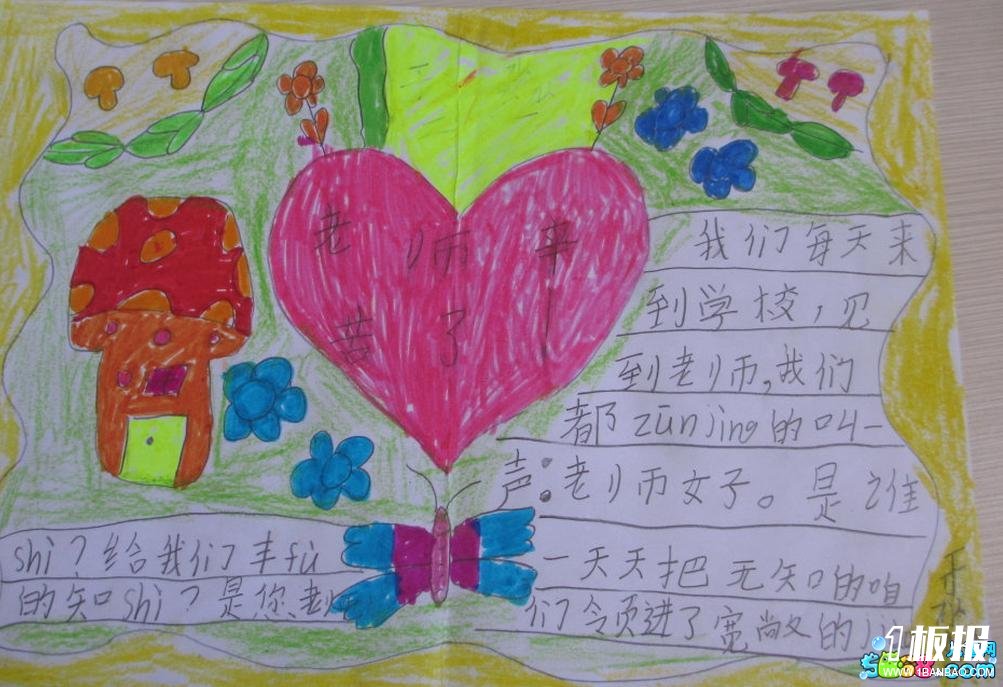 老师辛
苦了
我们每天来
到学校，见
到老师，我们
都zūnjìng的叫一
声：老师好。是谁
一天天把无知的咱
们领进了宽敞的
shi？给我们丰fù
的知shi？是您、老师
1板报
WWW.1BANBAO.COM